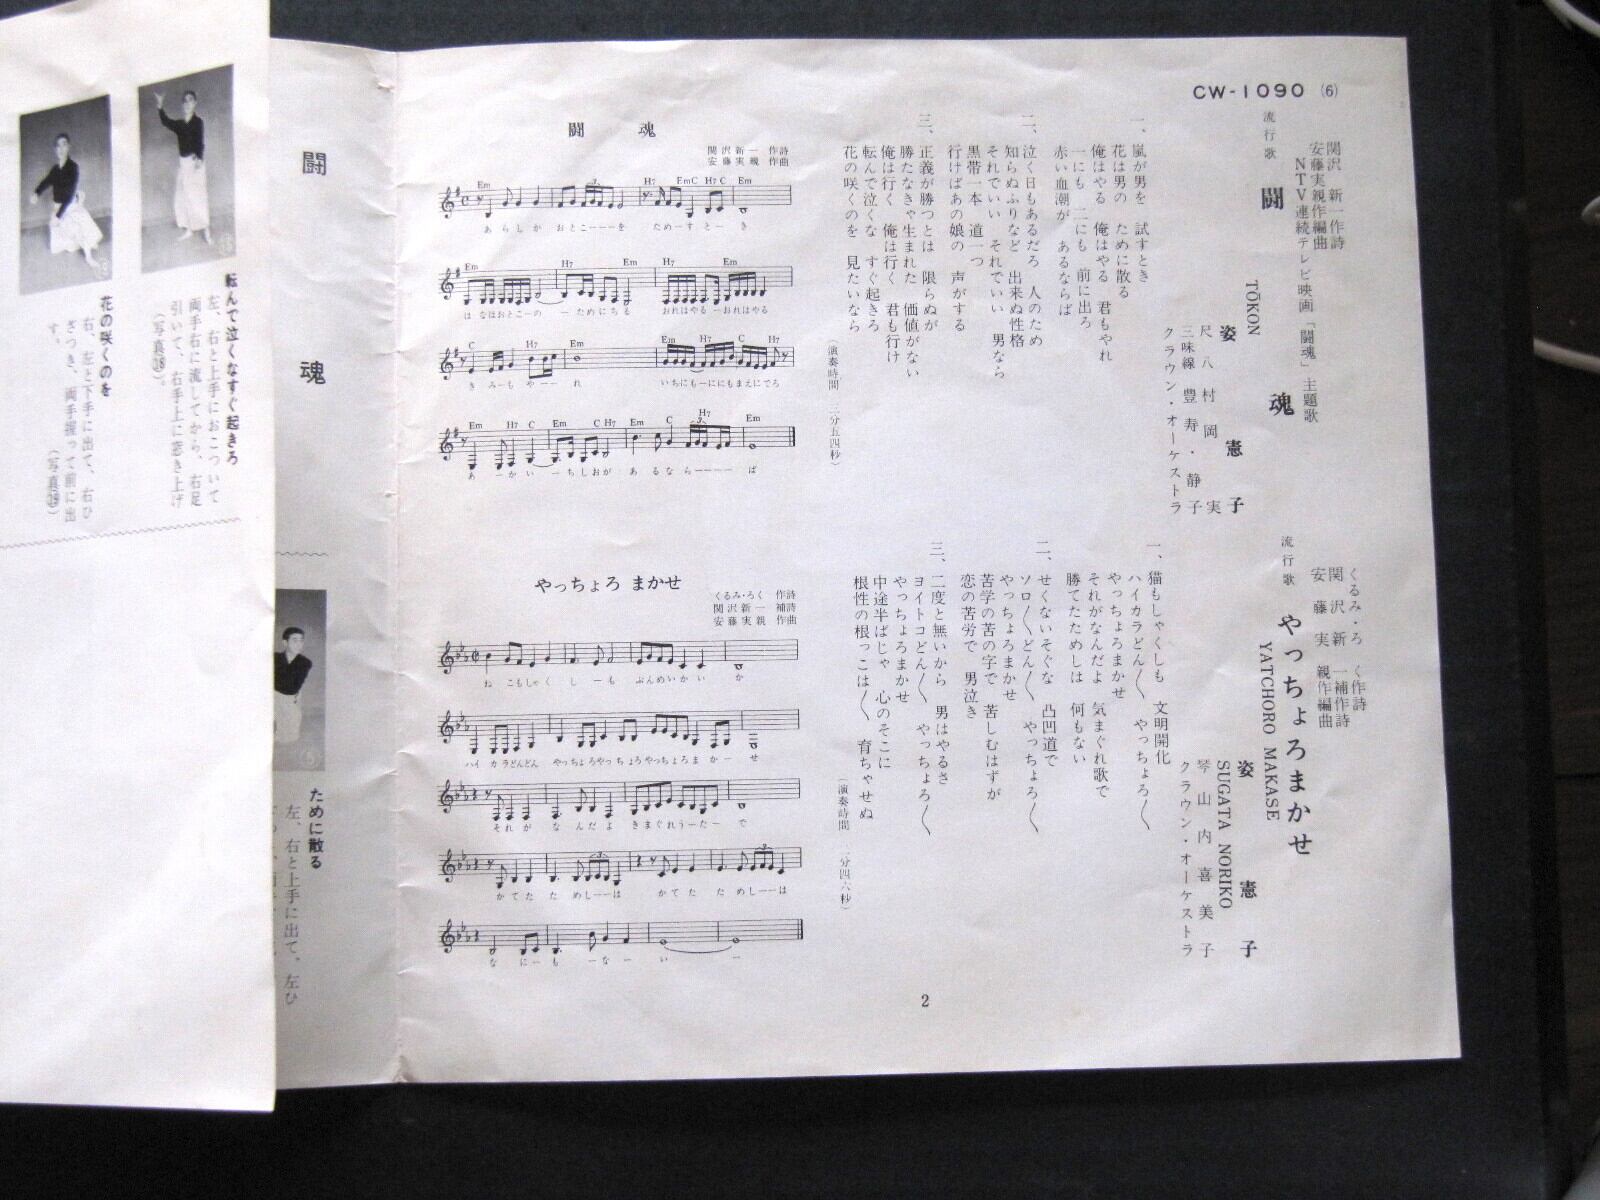 CW-1090 (6)
関沢新一作詩
安藤実親作編曲
NTV連続テレビ映画「闘魂」主題歌
流行歌
闘魂
TŌKON
姿憲子
尺八 村岡実
三味線 豊寿・静子
クラウン・オーケストラ
一、嵐が男を 試すとき
花は男の ために散る
俺はやる 俺はやる 君もやれ
一にも 二にも 前に出ろ
赤い血潮が あるならば
二、泣く日もあるだろ 人のため
知らぬふりなど 出来ぬ性格
それでいい それでいい 男なら
黒帯一本 道一つ
行けばあの娘の 声がする
三、正義が勝つとは 限らぬが
勝たなきゃ生まれた 価値がない
俺は行く 俺は行く 君も行け
転んで泣くな すぐ起きろ
花の咲くのを 見たいなら
(演奏時間 三分五四秒)
くるみ・ろく作詩
関沢新一補作詩
安藤実親作編曲
流行歌
やっちょろまかせ
YATCHORO MAKASE
姿憲子
SUGATA NORIKO
琴 山内喜美子
クラウン・オーケストラ
一、猫もしゃくしも 文明開化
ハイカラどん〱 やっちょろ〱
やっちょろまかせ
それがなんだよ 気まぐれ歌で
勝てたためしは 何もない
二、せくないそぐな 凸凹道で
ソロ〱どん〱 やっちょろ〱
やっちょろまかせ
苦学の苦の字で 苦しむはずが
恋の苦労で 男泣き
三、二度と無いから 男はやるさ
ヨイトコどん〱 やっちょろ〱
やっちょろまかせ
中途半ばじゃ 心のそこに
根性の根っこは〱 育ちゃせぬ
(演奏時間 二分四六秒)
闘魂
関沢新一 作詩
安藤実親 作曲
Em H7 EmC H7 C Em
あらしが おとこーーーを ためーす とーき
Em H7 Em H7
はなはおとこーの ーためにちる おれはやるーおれはやる
C H7 Em Em C H7
きみーも やーーれ いちにもーににもまえにでろ
Em H7 C Em C H7 Em C H7 Em
あーかいーちしおが あるならーーーーば
やっちょろ まかせ
くるみ・ろく 作詩
関沢新一 補詩
安藤実親 作曲
ねこもしゃくしーも ぶんめいかいか
ハイカラどんどん やっちょろやっちょろやっちょろまかーせ
それがなんだよ きまぐれうーたーで
かてたためしーーは かてたためしーーは
なにーもーなーいー
2
闘魂
転んで泣くなすぐ起きろ
左、右と上手におこついて
両手右に流してから、右足
引いて、右手上に巻き上げ
(写真⑱)。
花の咲くのを
右、左と下手に出て、右ひ
ざつき、両手握って前に出
す。 (写真⑲)
ために散る
左、右と上手に出て。左ひ